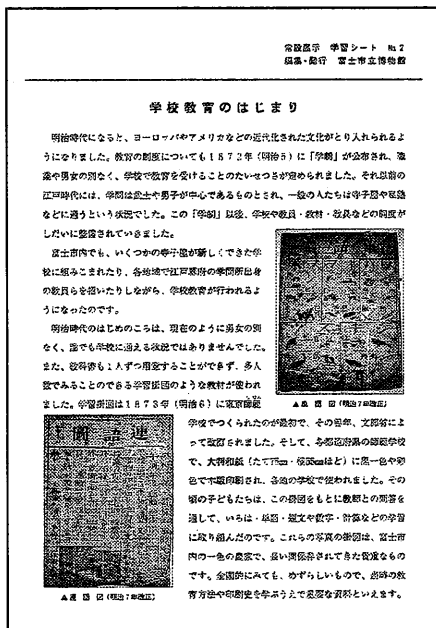 常設展示 学習シート №2
編集・発行 富士市立博物館
学校教育のはじまり
明治時代になると、ヨーロッパやアメリカなどの近代化された文化がとり入れられるよ
うになりました。教育の制度についても1872年(明治5)に「学制」が公布され、職
業や男女の別なく、学校で教育を受けることのたいせつさが定められました。それ以前の
江戸時代には、学問は武士や男子が中心であるものとされ、一般の人たちは寺子屋や私塾
などに通うという状況でした。この「学制」以後、学校や教員・教材・教具などの制度が
しだいに整備されていきました。
富士市内でも、いくつかの寺子屋が新しくできた学
校に組みこまれたり、各地域で江戸幕府の学問所出身
の教員らを招いたりしながら、学校教育が行われるよ
うになったのです。
明治時代のはじめのころは、現在のように男女の別
なく、誰でも学校に通える状況ではありませんでした。
また、教科書も1人ずつ用意することができず、多人
数でみることのできる学習掛図のような教材が使われ
ました。学習掛図は1873年(明治6)に東京師範
学校でつくられたのが最初で、その翌年、文部省によ
って改訂されました。そして、各都道府県の師範学校
で、大判和紙(たて75cm・横55cmほど)に墨一色や彩
色で木版印刷され、各地の学校で使われました。その
頃の子どもたちは、この掛図をもとに教師との問答を
通して、いろは・単語・短文や数字・計算などの学習
に取り組んだのです。これらの写真の掛図は、富士市
内の一色の農家で、長い間保存されてきた貴重なもの
です。全国的にみても、めずらしいもので、当時の教
育方法や印刷史を学ぶうえで重要な資料といえます。
▲ 図(明治7年改正)
連語図
▲連語図(明治7年改正)